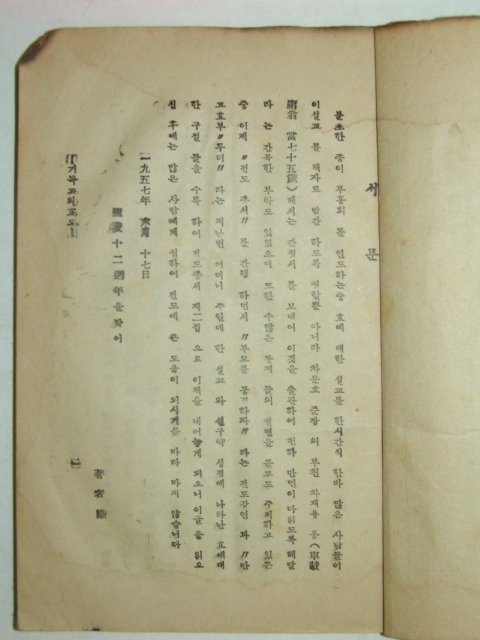 서 문
불초한 종이 부흥회 를 인도하는중 효에 대한 설교를 한시간식 한바 많은 사람들이
이설교 를 책자로 발간 하도록 권할뿐 아니라 차문호 준장 의 부친 차재용 옹(車載
翁 當七十五歲)께서는 간청서 를 보내어 이것을 출판하여 천하 만민이 다읽도록 해달
라 는 간곡한 부탁도 있었으며 또한 수많은 동지 들의 권면을 듣고도 주저하고 있든
중 이제 〃전도 총서〃 를 간행 하면서 〃부모를 공경하자〃 라는 전도강연 과 〃만
고효부〃 〃루디〃 라는 지난번 어머니 주일에 한 설교 와 신구약 성경에 나타난 효에대
한 구절 들을 수록 하여 전도총서 제二집 으로 이책을 내어놓게 되오니 이글 을 읽으
신 후에는 많은 사람에게 권하여 전도에 큰 도움이 되시기를 바라 마지 않습니다
一九五七年 六月 十七日
十二週年을 맞어
著者
기독교의 효도